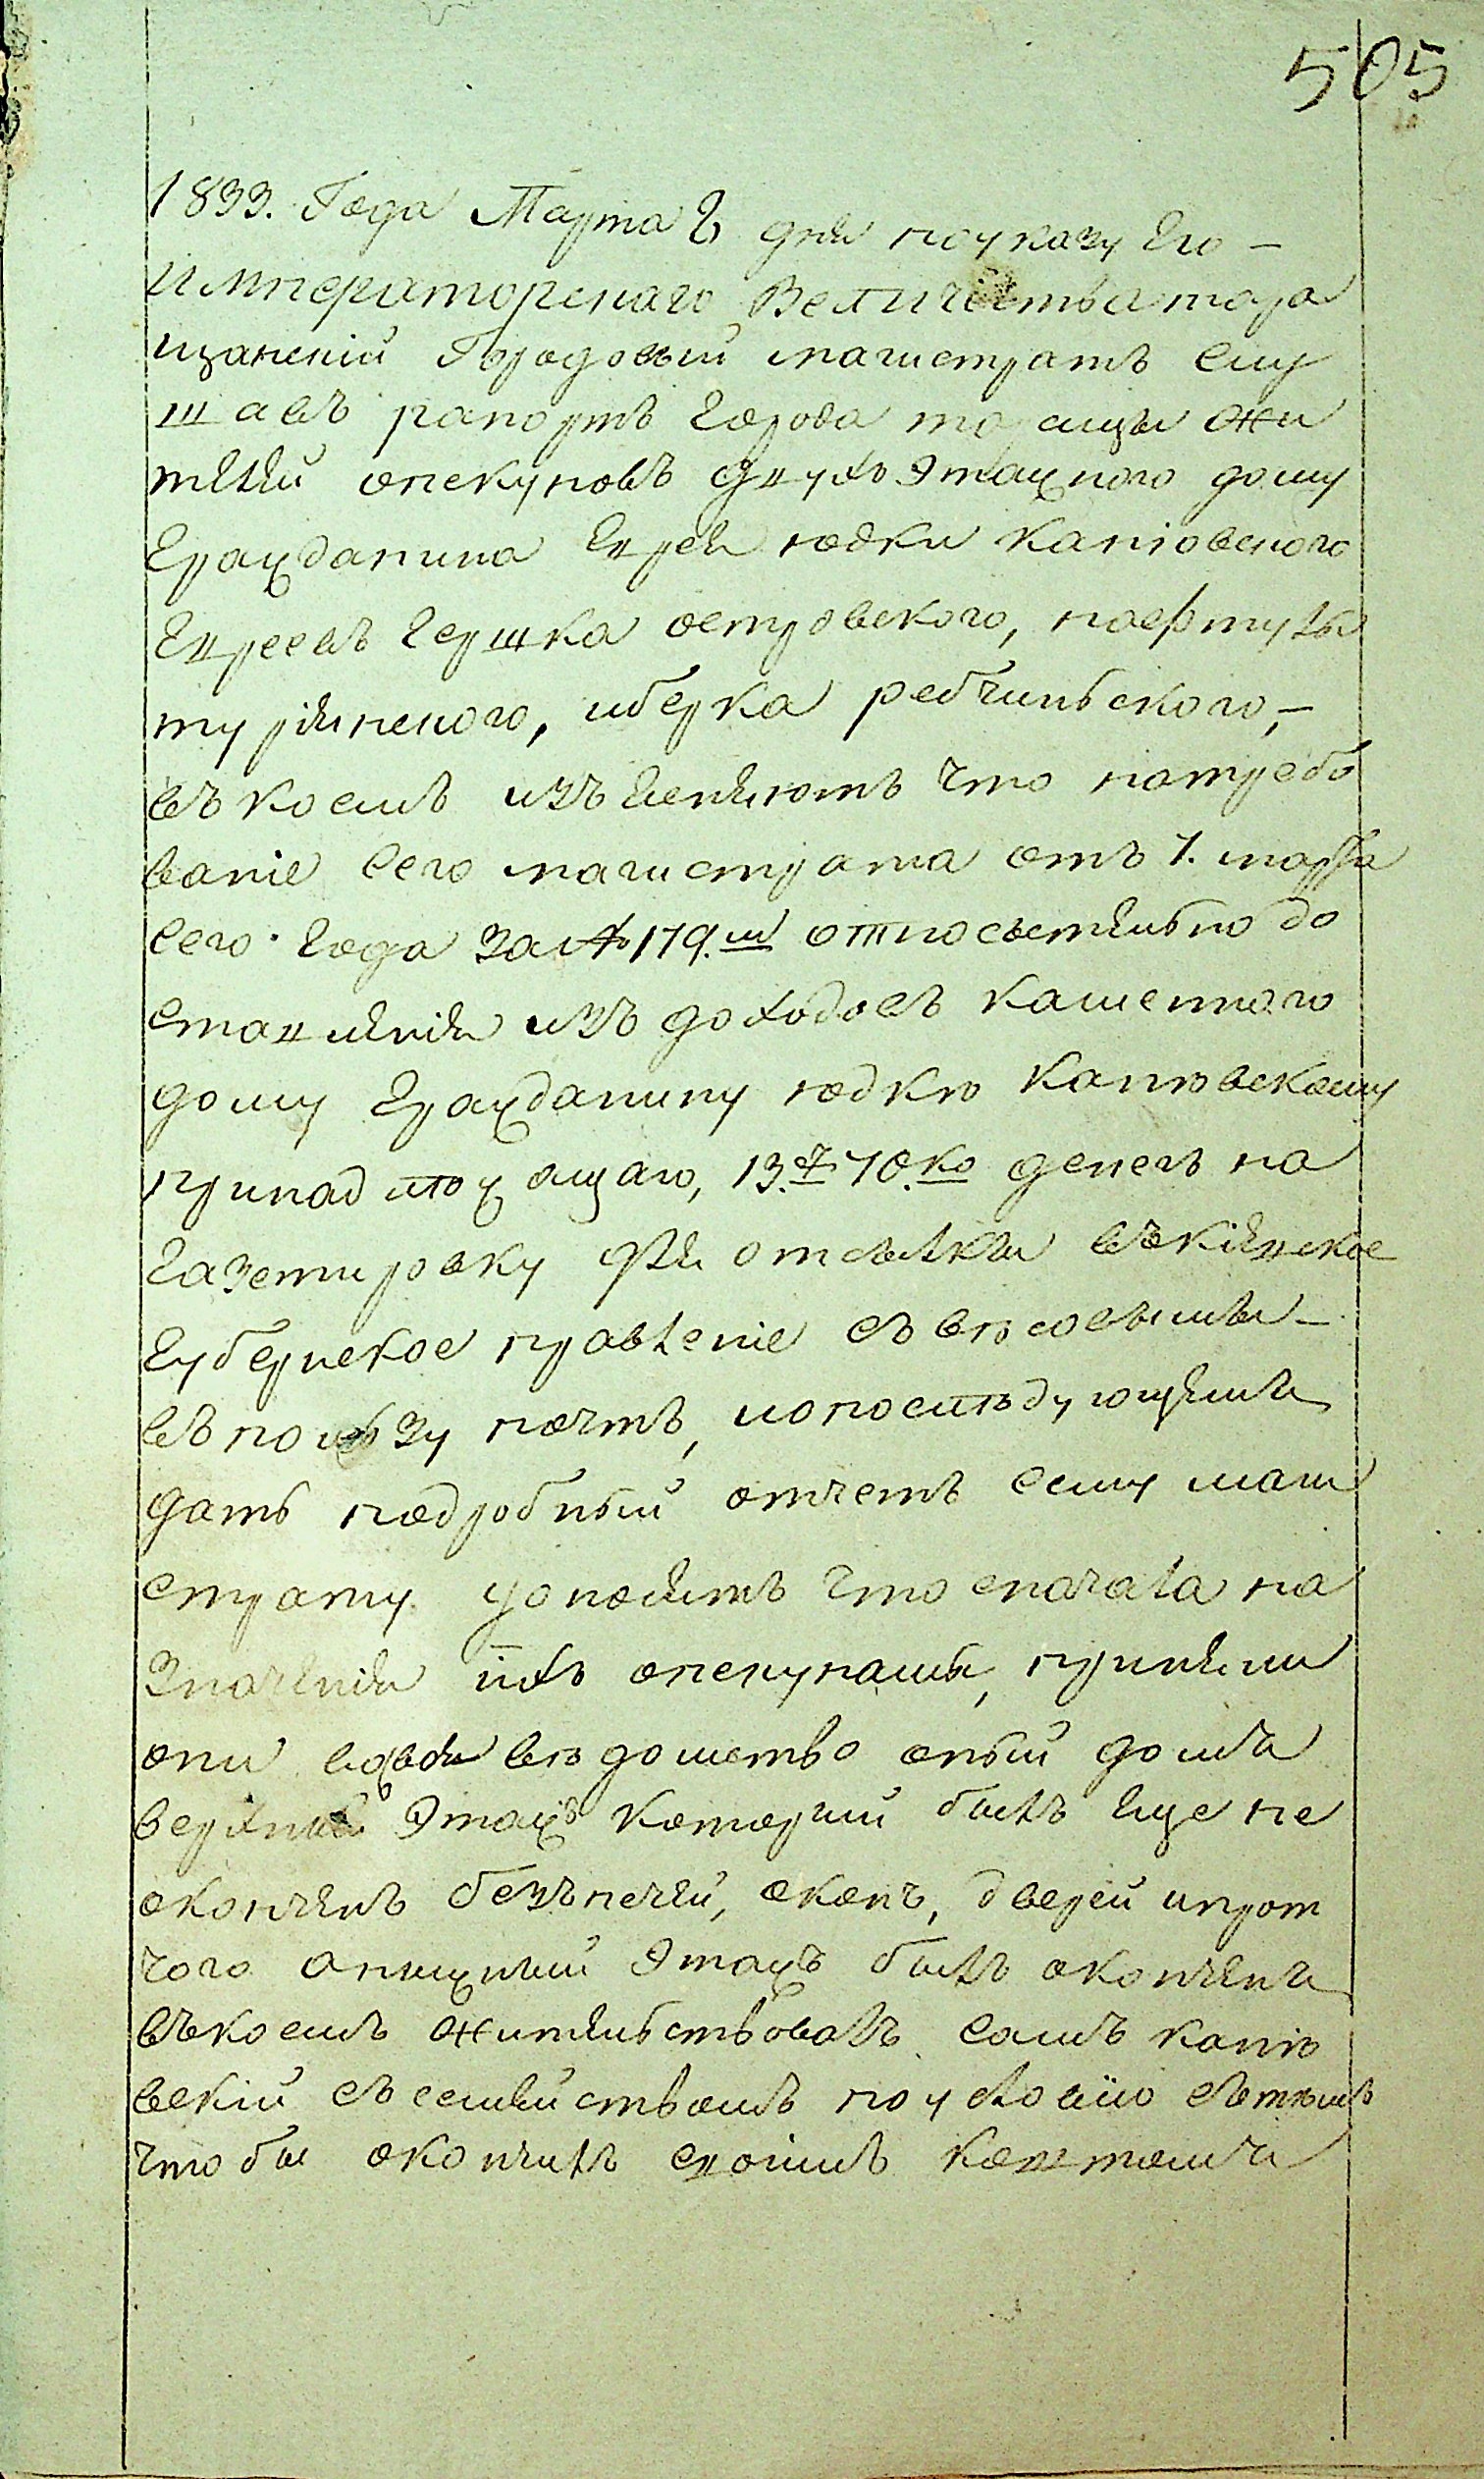 505
1833. Года Марта 6 дня поуказу Его –
Императорскаго Величества тора
щанскiй Городовый магистратъ слу
шавъ рапортъ города таращи жи
телей опекуновъ двухъ Этажного дому
Гражданина Еврея юдки каневского
Евреевъ Гершка островского, нафтулы
турянского, иберка ребчинского, –
въ коемъ изъясняютъ что потребо
ванiе сего магистрата отъ 7. марта
сего года за № 179.м относытельно до
ставленiя изъ доходовъ каменного
дому Гражданину юдкѣ каневскому
принадлежащаго, 13.р 70.ко денегъ на
газетировку для отсылки въкiевское
Губернское правленiе съ вѣсовыми –
въ пользу почтъ, ипослѣдующемъ
дать подробный отчетъ сему маги
страту доносятъ что сначала на
значенiя ихъ опекунами, приняли
они въ вѣдомство оный домъ
верхный Этажъ который былъ Еще не
оконченъ безъ печей, оконъ, дверей ипрот
чого анижный Этажъ былъ оконченъ
въкоемъ жительствовалъ самъ канев
вскiй съ семействомъ по условiю сътѣмъ
чтобы окончилъ своимъ коштомъ